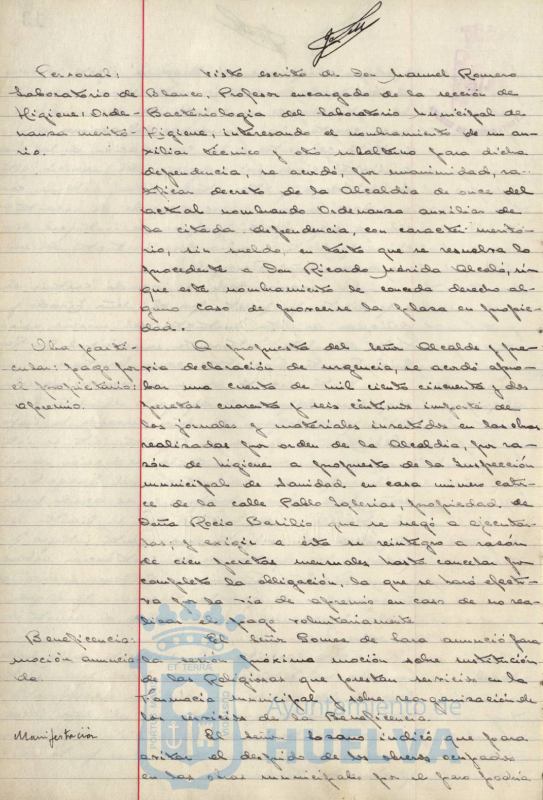 Personal:
Laboratorio de
Higiene: Orde-
nanza merito-
rio.
Visto escrito de Don Manuel Romero
Blanco, Profesor encargado de la sección de
Bacteriología del Laboratorio Municipal de
Higiene, interesando el nombramiento de un au-
xiliar técnico y otro subalterno para dicha
dependencia, se acordó, por unanimidad, ra-
tificar decreto de la Alcaldía de once del
actual nombrando Ordenanza auxiliar de
la citada dependencia, con caracter merito-
rio, sin sueldo, en tanto que se resuelva lo
procedente a Don Ricardo Mérida Alcalá, sin
que este nombramiento le conceda derecho al-
guno caso de proveerse la plaza en propie-
dad.
Obra parti-
cular: pago por
el propietario:
apremio.
A propuesta del Señor Alcalde y pre-
via declaración de urgencia, se acordó apro-
bar una cuenta de mil ciento cincuenta y dos
pesetas cuarenta y seis céntimos importe de
los jornales y materiales invertidos en las obras
realizadas por orden de la Alcaldía, por ra-
zón de higiene a propuesta de la Inspección
municipal de Sanidad, en casa número cator-
ce de la calle Pablo Iglesias, propiedad de
Doña Rocío Basilio que se negó a ejecutar-
las; y exigir a ésta su reintegro a razón
de cien pesetas mensuales hasta cancelar por
completo la obligación, la que se hará efecti-
va por la vía de apremio en caso de no rea-
lizar el pago voluntariamente
Beneficencia:
moción anuncia-
da.
El Señor Gomez de Lara anunció para
la sesión próxima moción sobre sustitución
de las Religiosas que prestan servicios en la
Farmacia municipal y sobre reorganización de
los servicios de la Beneficencia.
Manifestación
El Señor Lozano indicó que para
evitar el despido de los obreros ocupados
en las obras municipales por el paro podría
ET TERRÆ
Ayuntamiento de
HUELVA